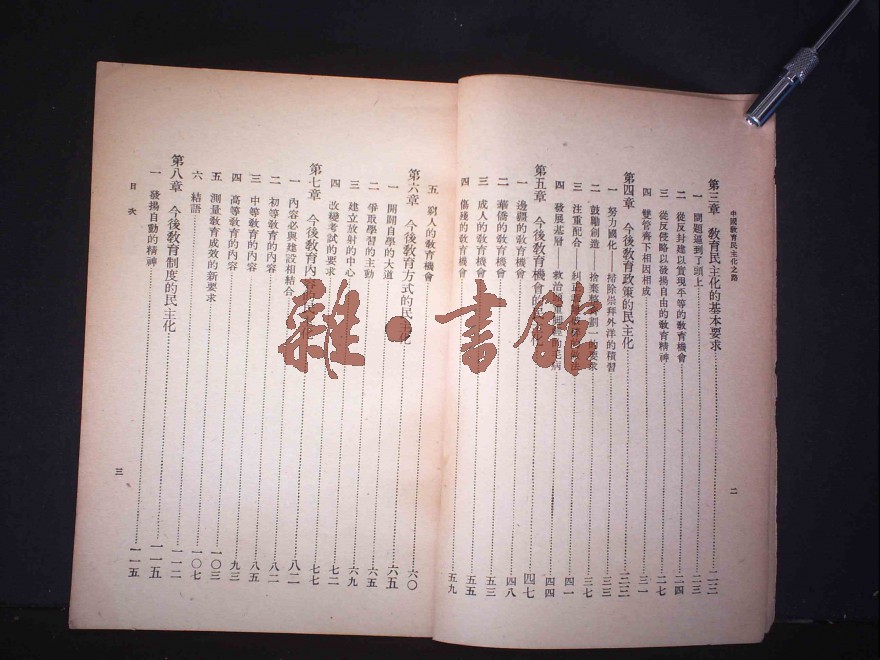 中國教育民主化之路
第三章 教育民主化的基本要求……二二
一 問題逼到了頭上……二三
二 從反封建以實現平等的教育機會……二四
三 從反侵略以發揚自由的教育精神……二七
四 雙管齊下相因相成……三一
第四章 今後教育政策的民主化……三三
一 努力國化——掃除崇拜外洋的積習……三三
二 鼓勵創造——捨棄整劃一的要求……三七
三 注重配合——糾正……四一
四 發展基層——救治……病……四四
第五章 今後教育機會的民主化……四七
一 邊疆的教育機會……四八
二 華僑的教育機會
三 成人的教育機會……五三
四 傷殘的教育機會……五五
二
五 窮人的教育機會……五九
第六章 今後教育方式的民主化……六〇
一 開闢自學的大道……六五
二 爭取學習的主動……六五
三 建立放射的中心……六九
四 改變考試的要求……七二
第七章 今後教育內容的民……七七
一 內容必與建設相結合……八二
二 初等教育的內容……八二
三 中等教育的內容……八五
四 高等教育的內容……九三
五 測量教育成效的新要求……一〇三
六 結語……一〇七
第八章 今後教育制度的民主化……一一二
一 發揚自動的精神……一一五
目次
三
一一五
雜·書館